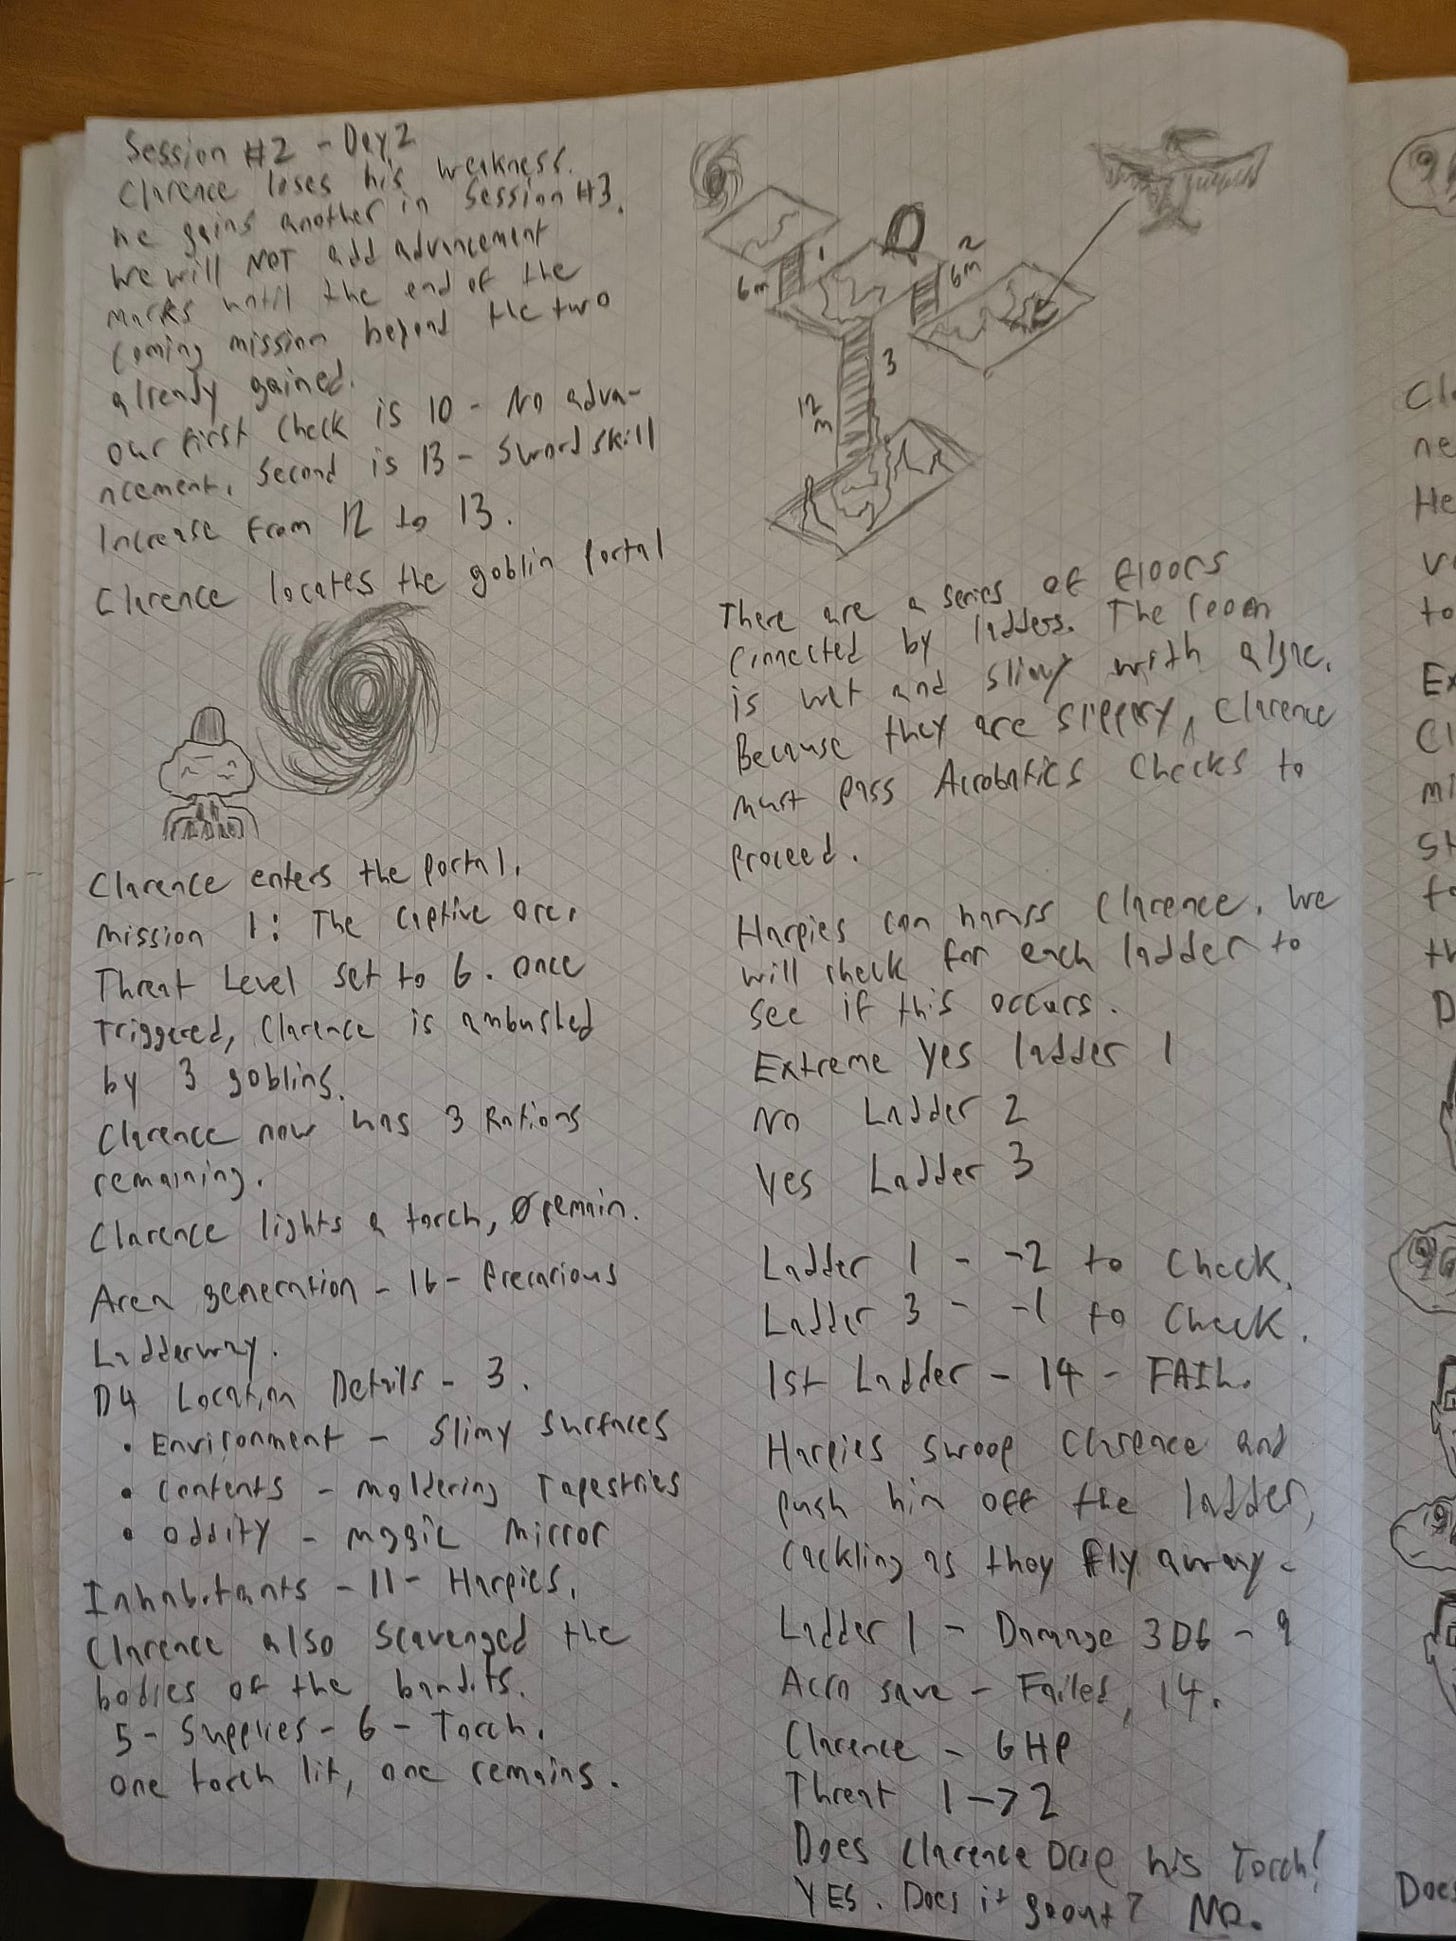 Session #2 - Day 2
Clarence loses his weakness.
he gains another in Session #3.
We will NOT add advancement
marks until the end of the
coming mission beyond the two
already gained.
our first check is 10 - No adva-
ncement. Second is 13 - Sword skill
Increase from 12 to 13.
Clarence locates the goblin portal
Clarence enters the portal.
Mission 1: The captive orc.
Threat Level set to 6. once
triggered, Clarence is ambushed
by 3 goblins.
Clarence now has 3 Rations
remaining.
Clarence lights a torch, 0 remain.
Area generation - 16 - Precarious
Ladderway.
D4 Location Details - 3.
• Environment - Slimy surfaces
• Contents - moldering Tapestries
• oddity - magic mirror
Inhabitants - 11 - Harpies.
Clarence also scavenged the
bodies of the bandits.
5 - Supplies - 6 - Torch.
one torch lit, one remains.
1
6m
2
6m
3
12
m
There are a series of floors
connected by ladders. The room
is wet and slimy with algae.
Because they are slippery, Clarence
must pass Acrobatics checks to
proceed.
Harpies can harass Clarence. We
will check for each ladder to
see if this occurs.
Extreme yes ladder 1
No Ladder 2
Yes Ladder 3
Ladder 1 - -2 to Check.
Ladder 3 - -1 to Check.
1st Ladder - 14 - FAIL.
Harpies swoop Clarence and
push him off the ladder,
cackling as they fly away.
Ladder 1 - Damage 3D6 - 9
Acro save - Failed, 14.
Clarence - 6HP
Threat 1 -> 2
Does Clarence Drop his Torch?
YES. Does it go out? No.
Does